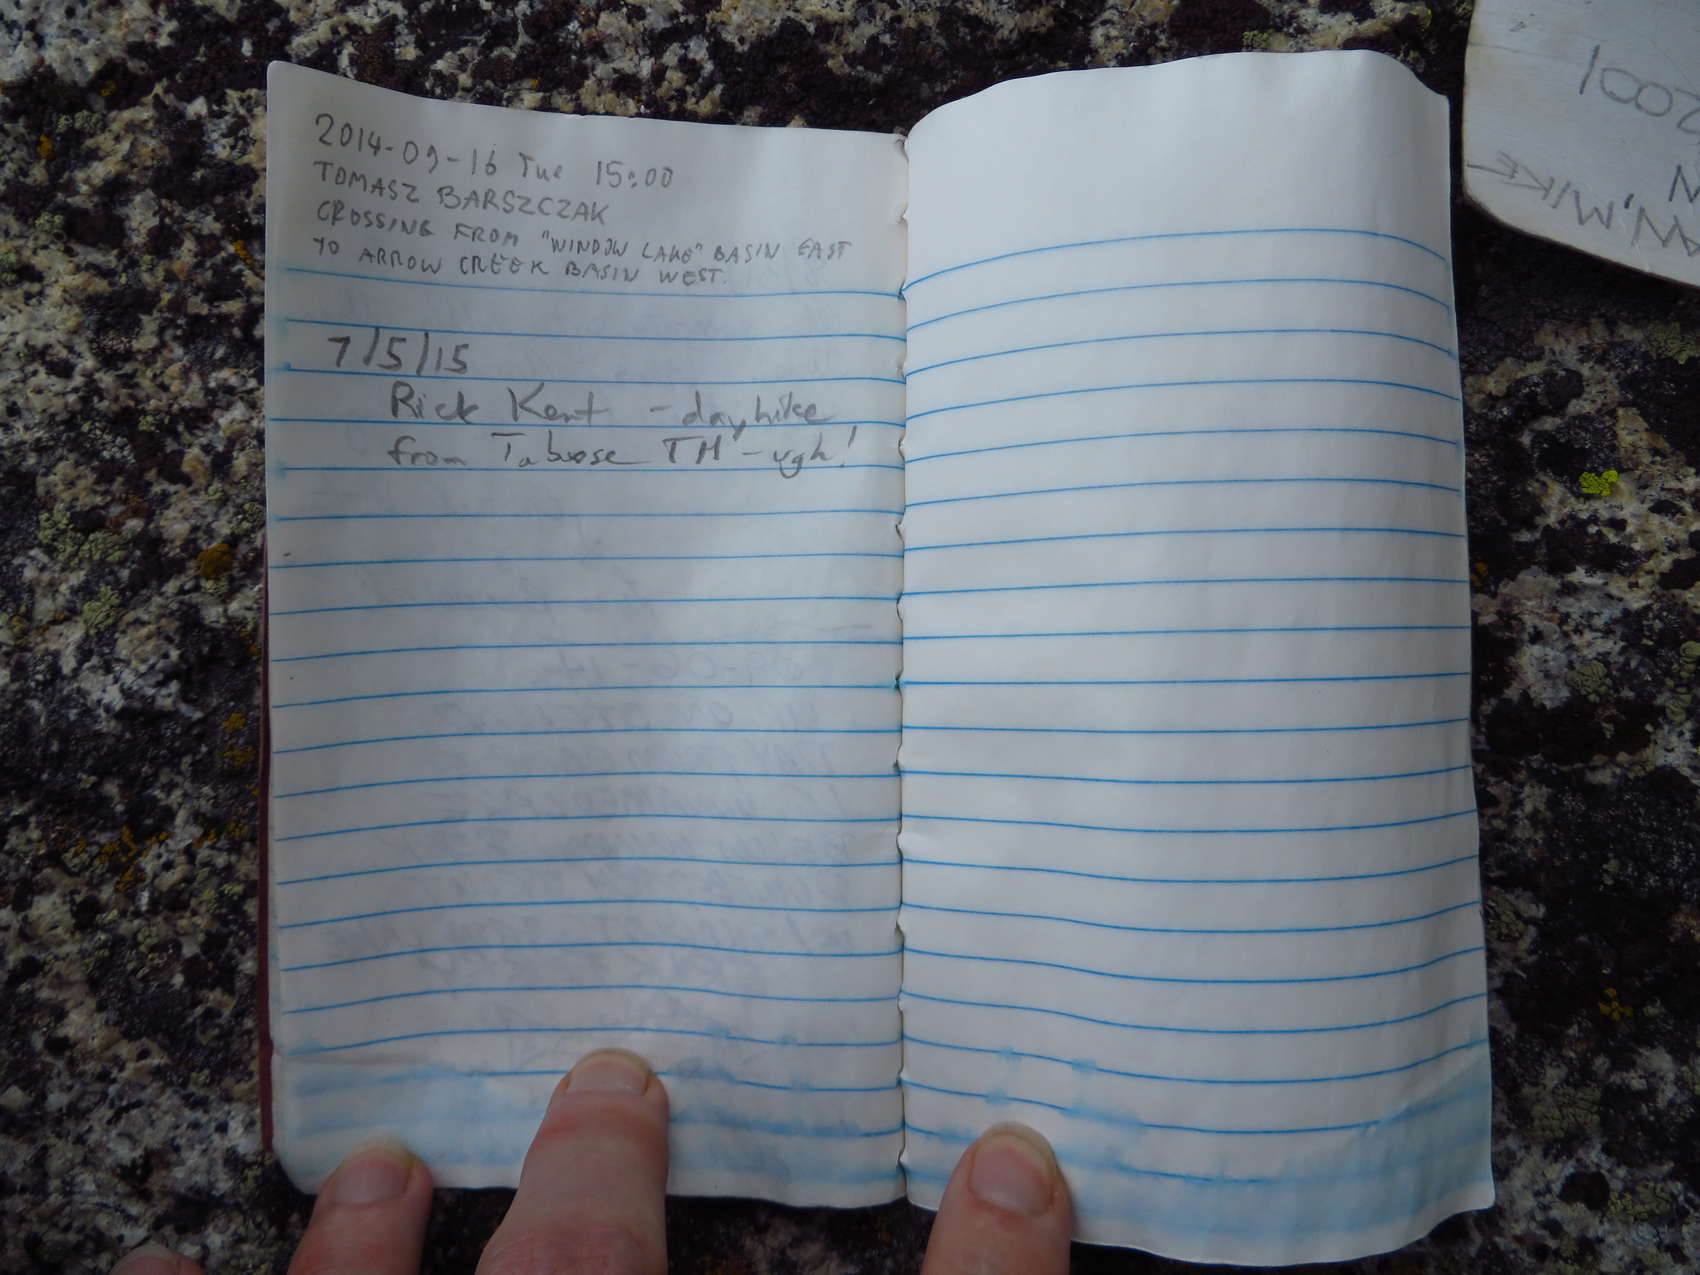 2014-09-16 Tue 15:00
TOMASZ BARSZCZAK
CROSSING FROM "WINDOW LAKE" BASIN EAST
TO ARROW CREEK BASIN WEST.
7/5/15
Rick Kent - dayhike
from Taboose TH - ugh!
2001
N
AN, MIKE